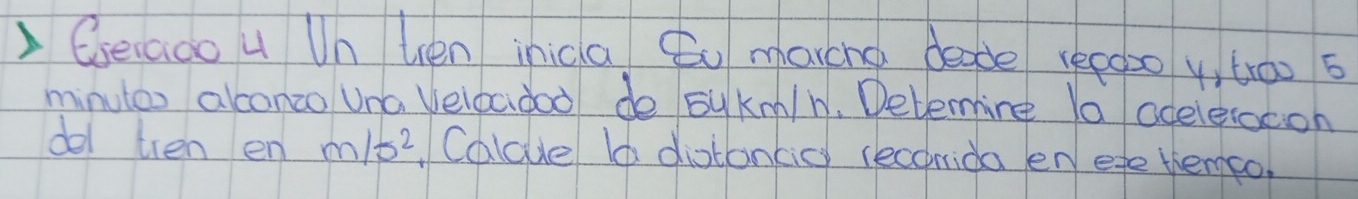 > Ejercicio 4 Un tren inicia Su marcha desde reposo y, tras 5
minutos alcanza una velocidad de 54km/h. Determine la aceleracion
del tren en m/s². Calcule la distancia recorrida en ese tiempo.